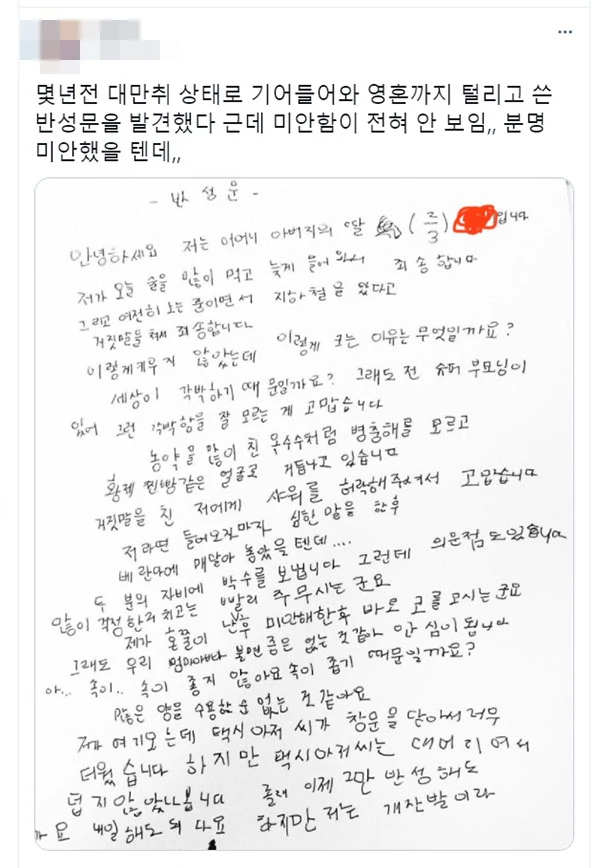 몇년전 대만취 상태로 기어들어와 영혼까지 털리고 쓴
반성문을 발견했다 근데 미안함이 전혀 안 보임,, 분명
미안했을 텐데,,
- 반성문 -
안녕하세요 저는 어머니 아버지의 딸 (2/3) 입니다
제가 오늘 술을 많이 먹고 늦게 들어와서 죄송합니다
그리고 여전히 노는 중이면서 지하철을 탔다고
거짓말을 쳐서 죄송합니다
이렇게 키우지 않았는데 이렇게 크는 이유는 무엇일까요?
세상이 각박하기 때문일까요? 그래도 전 슈퍼 부모님이
있어 그런 각박함을 잘 모르는 게 고맙습니다
농약을 많이 친 옥수수처럼 병충해를 모르고
황제 찐빵같은 얼굴로 거듭나고 있습니다
거짓말을 친 저에게 샤워를 허락해주셔서 고맙습니다
저라면 들어오자마자 심한 말을 한후
베란다에 매달아 놓았을 텐데....
두 분의 자비에 박수를 보냅니다 그런데 의문점도 있습니다
많이 걱정한거 치고는 빨리 주무시는군요
제가 혼쭐이 난후 미안해한후 바로 코를 고시는군요
그래도 우리 엄마아빠가 불면증은 없는 것같아 안심이 됩니다
아... 속이.. 속이 좋지 않아요 속이 좁기 때문일까요?
많은 양을 수용할 순 없는 것 같아요
제가 여기오는데 택시아저씨가 창문을 닫아서 너무
더웠습니다 하지만 택시아저씨는 대머리여서
덥지 않았나봅니다 몰래 이제 그만 반성해도
되나요 내일 해도 되나요 하지만 저는 개찬발이라